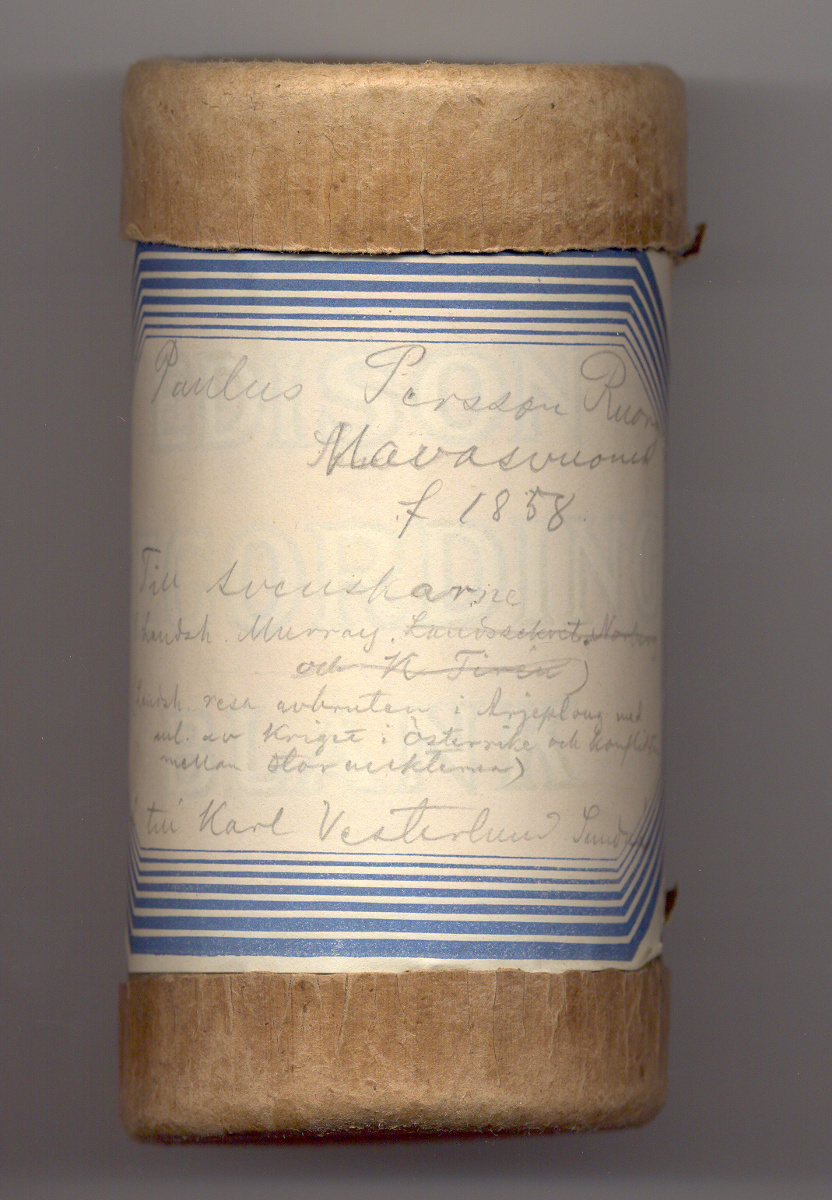 Paulus Persson Ruon
Mavasvuoma
f 1858
Till svenskarne
Landsh. Murray. Landssekret. Norberg
och K Tirén)
Landsh. resa avbruten i Arjeploug med
anl. av Kriget i Österrike och konflikten
mellan stormakterna)
till Karl Vesterlund
EDISON
RECORDING
BLANK